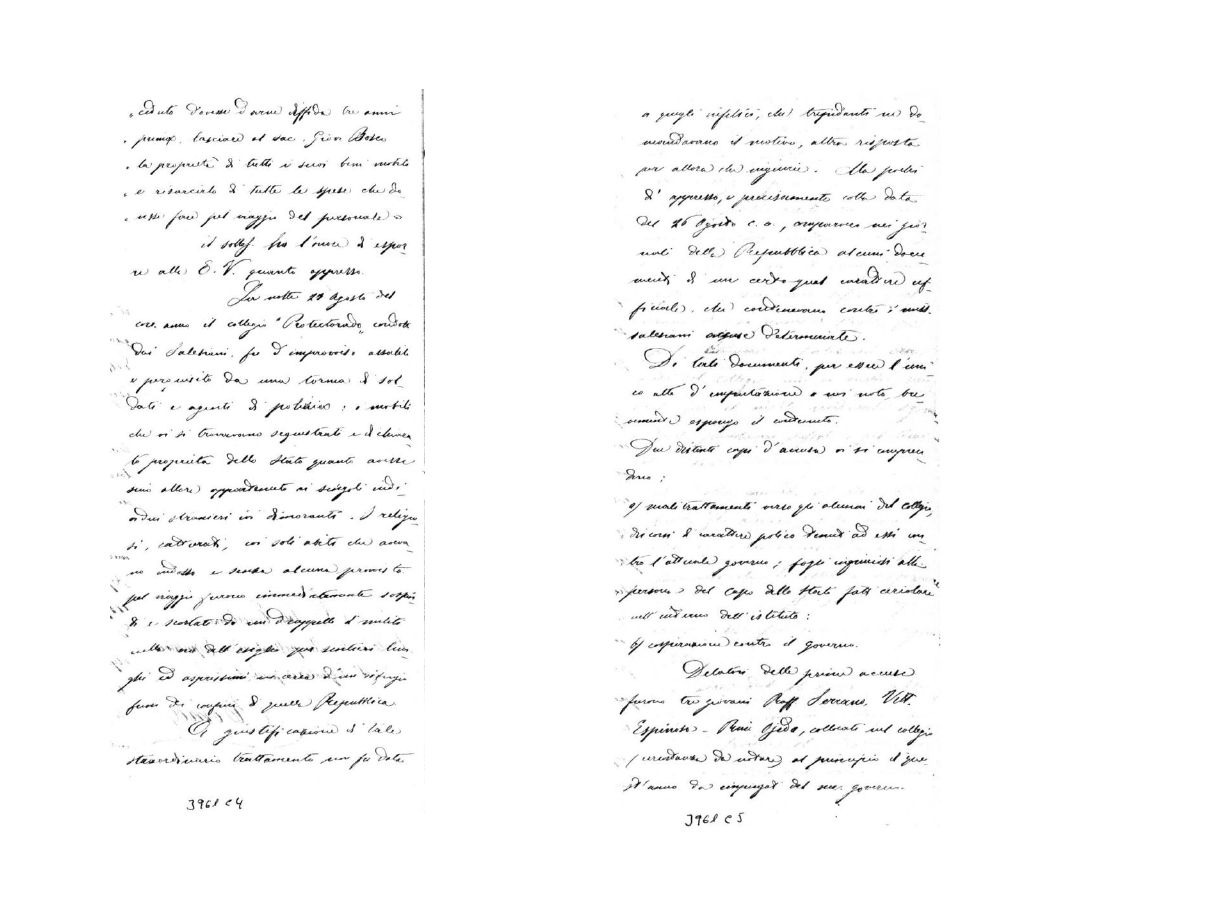 „ ceduto dovesse darne diffida tre anni
„ prima, lasciare al sac. Giov. Bosco
„ la proprietà di tutti i suoi beni mobili
„ e risarcirlo di tutte le spese che do
„ vesse fare pel viaggio del personale =
il sottos. ha l'onore di espor
re alla E. V. quanto appresso.
La notte 23 Agosto del
corr. anno il collegio "Protectorado„ condotto
dai Salesiani, fu d'improvviso assalito
e perquisito da una torma di sol_
dati e agenti di polizia; i mobili
che vi si trovavano sequestrati e dichiara
ti proprietà dello Stato quanto avesse
sino allora appartenuto ai singoli indi_
vidui stranieri ivi dimoranti. I religio
si, catturati, coi soli abiti che aveva_
no indosso e senza alcuna provvista
pel viaggio furono immediatamente sospin
ti e scortati da un drappello di militi
nella via dell'esiglio per sentieri lun_
ghi ed asprissimi in cerca d'un rifugio
fuori dei confini di quella Repubblica
A giustificazione di tale
straordinario trattamento non fu data
3961 C4
a quegli infelici, che trepidanti ne do_
mandavano il motivo, altra risposta
per allora che ingiurie. Ma pochi
dì appresso, e precisamente colla data
del 26 Agosto c. a., comparvero nei gior
nali della Repubblica alcuni docu_
menti di un certo qual carattere uf_
ficiale, che contenevano contro i miss.
salesiani accuse determinate.
Di tali documenti, per essere l'uni
co atto d'imputazione a noi noto bre_
vemente espongo il contenuto.
Due distinti capi d'accusa vi si compren
dono:
a) mali trattamenti verso gli alunni del collegio,
discorsi di carattere politico tenuti ad essi con_
tro l'attuale governo; fogli ingiuriosi alla
persona del Capo dello Stato fatti circolare
nell'interno dell'istituto:
b) cospirazione contro il governo.
Delatori delle prime accuse
furono tre giovani Raff. Serrano, Vitt.
Espinosa - Ojeda, collocati nel collegio
(circostanza da notare) al principio di que_
st'anno da impiegati del governo.
3961 C5